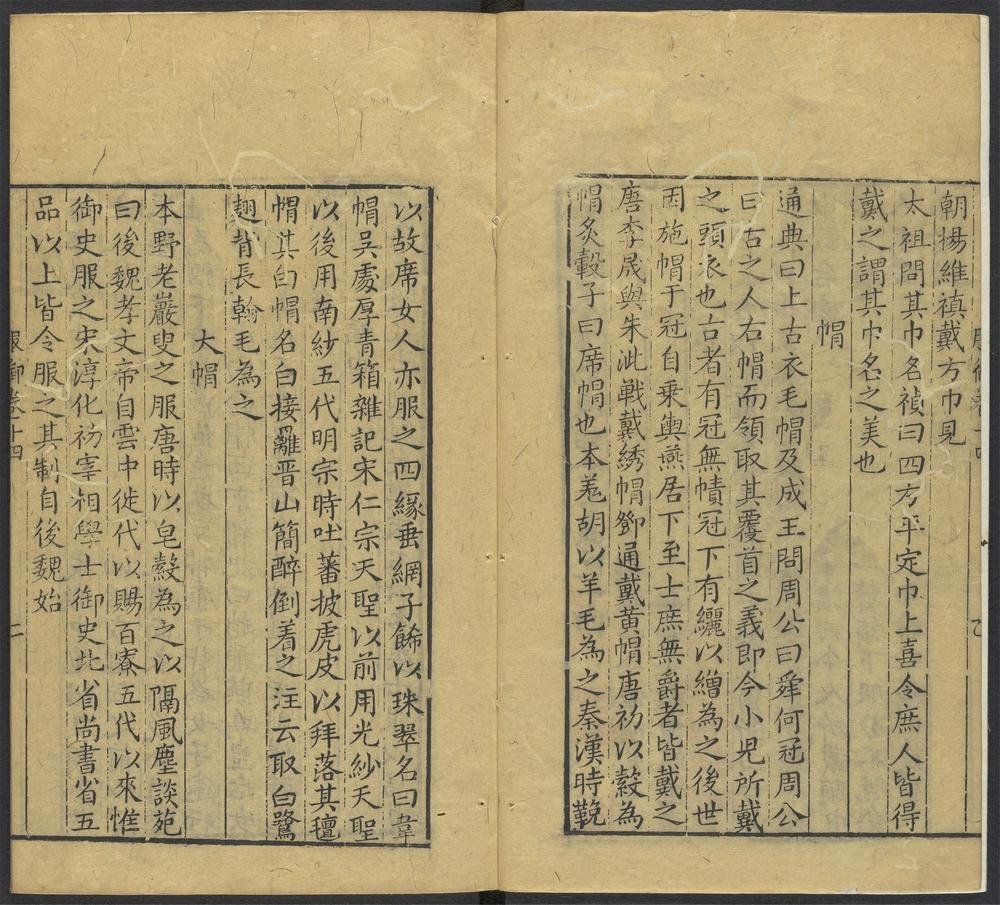 朝揚維禎戴方巾見
太祖問其巾名禎曰四方平定巾上喜令庶人皆得
戴之謂其巾名之美也
帽
通典曰上古衣毛帽及成王問周公曰舜何冠周公
曰古之人右帽而領取其覆首之義即今小児所戴
之頭衣也古者有冠無幘冠下有纚以繒為之後世
因施帽于冠自乘輿燕居下至士庶無爵者皆戴之
唐李晟與朱泚戰戴綉帽鄧通戴黄帽唐初以縠為
帽炙轂子曰席帽也本羗胡以羊毛為之秦漢時鞔
以故席女人亦服之四縁垂網子餙以珠翠名曰韋
帽吳處厚青箱雜記宋仁宗天聖以前用光紗天聖
以後用南紗五代明宗時吐蕃披虎皮以拜落其氊
帽其白帽名白接䍦晋山簡醉倒着之注云取白鷺
翅背長翰毛為之
大帽
本野老巖叟之服唐時以皂縠為之以隔風塵談苑
曰後魏孝文帝自雲中徙代以賜百寮五代以來惟
御史服之宋淳化初宰相學士御史北省尚書省五
品以上皆令服之其制自後魏始
服御卷十四 二